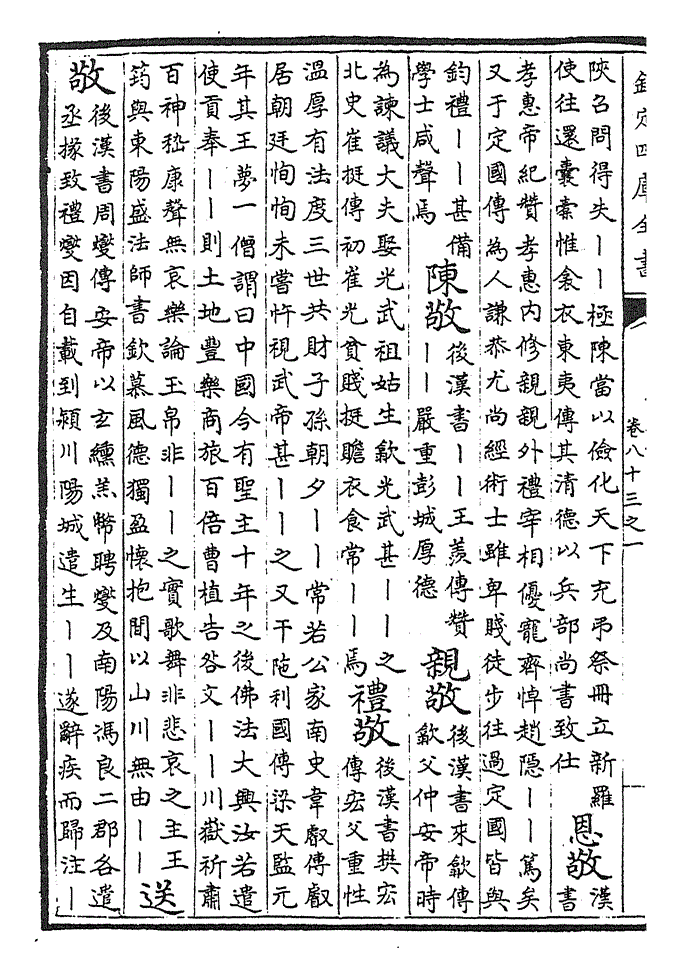 欽定四庫全書
卷八十三之一
陝召問得失丨丨極陳當以儉化天下充弔祭冊立新羅
使往還囊橐惟衾衣東夷傳其清德以兵部尚書致仕
恩敬
漢
書
孝惠帝紀贊孝惠内修親親外禮宰相優寵齊悼趙隠丨丨篤矣
又于定國傳為人謙恭尤尚經術士雖卑賤徒步往過定國皆與
鈞禮丨丨甚備
學士咸聲焉
陳敬
後漢書丨丨王羨傳贊
丨丨嚴重彭城厚德
親敬
後漢書來歙傳
歙父仲安帝時
為諫議大夫娶光武祖姑生歙光武甚丨丨之
北史崔挺傳初崔光貧賤挺贍衣食常丨丨焉
禮敬
後漢書樊宏
傳宏父重性
温厚有法度三世共財子孫朝夕丨丨常若公家南史韋叡傳叡
居朝廷恂恂未嘗忤視武帝甚丨丨之又干陁利國傳梁天監元
年其王夢一僧謂曰中國今有聖主十年之後佛法大興汝若遣
使貢奉丨丨則土地豐樂商旅百倍曹植告咎文丨丨川嶽祈肅
百神嵇康聲無哀樂論玉帛非丨丨之實歌舞非悲哀之主王
筠與東陽盛法師書欽慕風德獨盈懷抱間以山川無由丨丨
送
敬
後漢書周燮傳安帝以玄纁羔幣聘燮及南陽馮良二郡各遣
丞掾致禮燮因自載到潁川陽城遣生丨丨遂辭疾而歸注丨